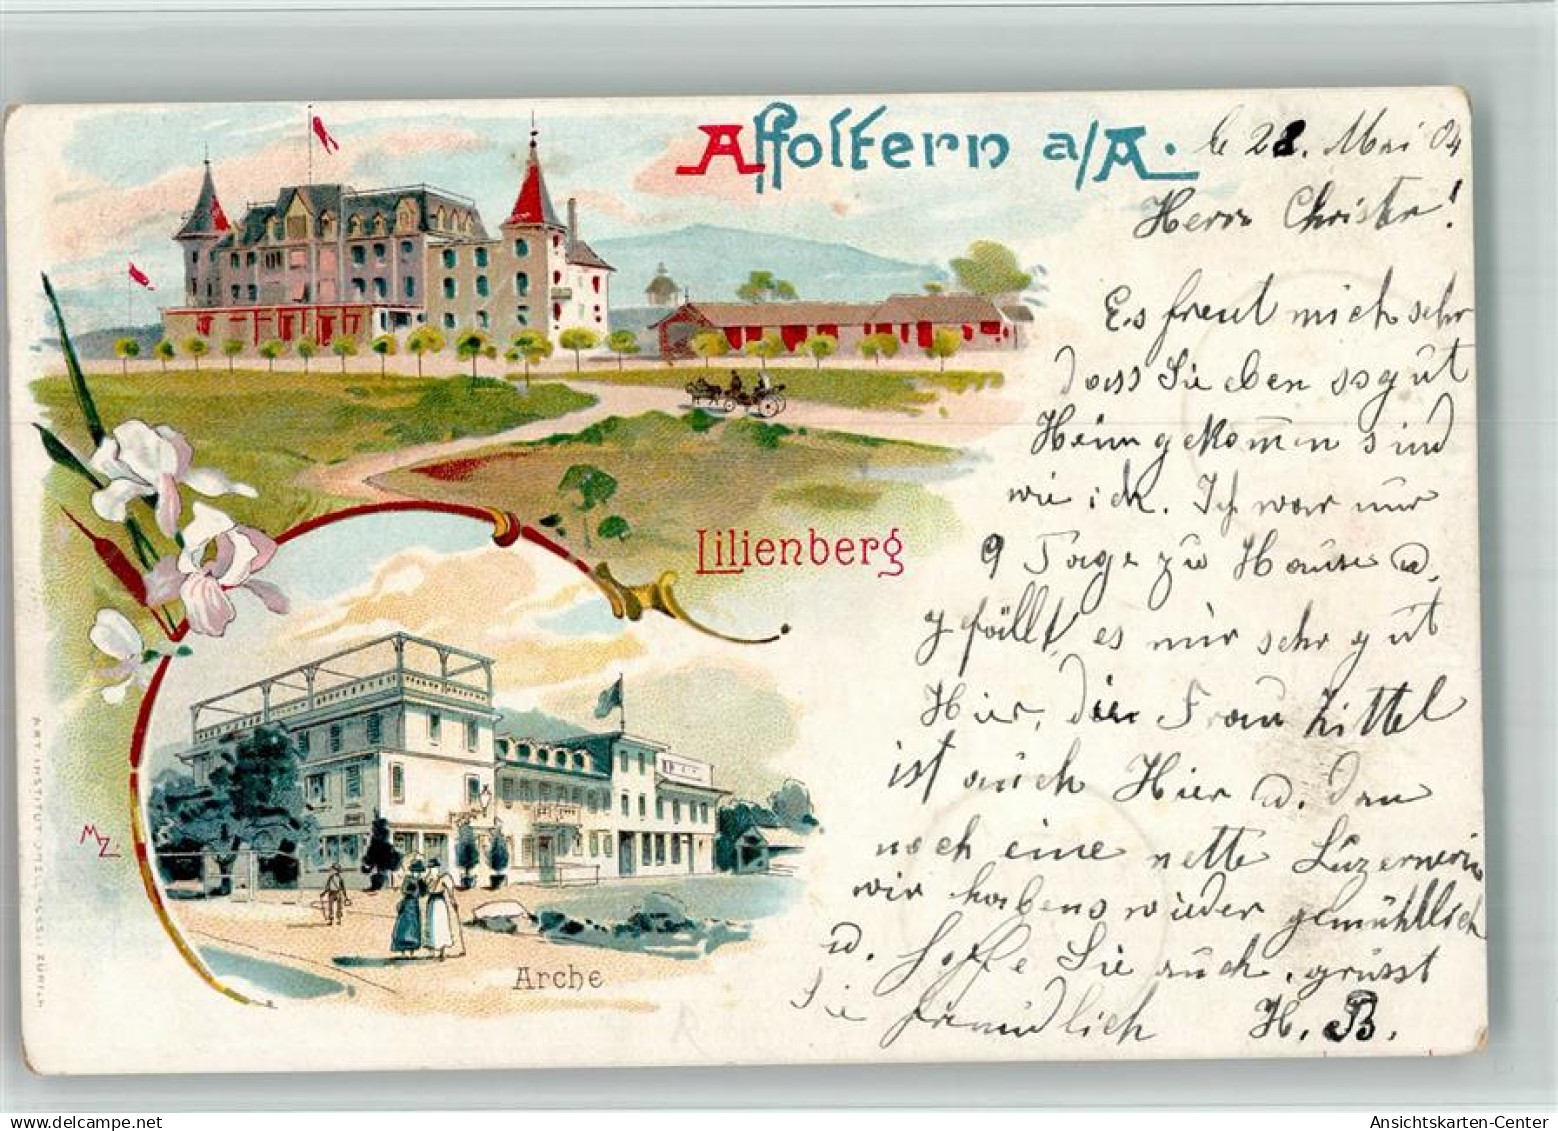 Affoltern a/A. le 28. Mai 04
Herrn Christen!
Es freut mich sehr
dass Sie eben so gut
Heimgekommen sind
wie ich. Ich war nur
9 Tage zu Hause u.
gefällt es mir sehr gut
Hier, die Frau Zittel
ist auch Hier u. dan
noch eine nette Luzernerin
wir haben es wieder gemühtlich
u. hoffe Sie auch. grüsst
Sie freundlich H. B.
Lilienberg
Arche
MZ.
ART. INSTITUT ORELL FUSSLI ZÜRICH
delcampe.net
Ansichtskarten-Center